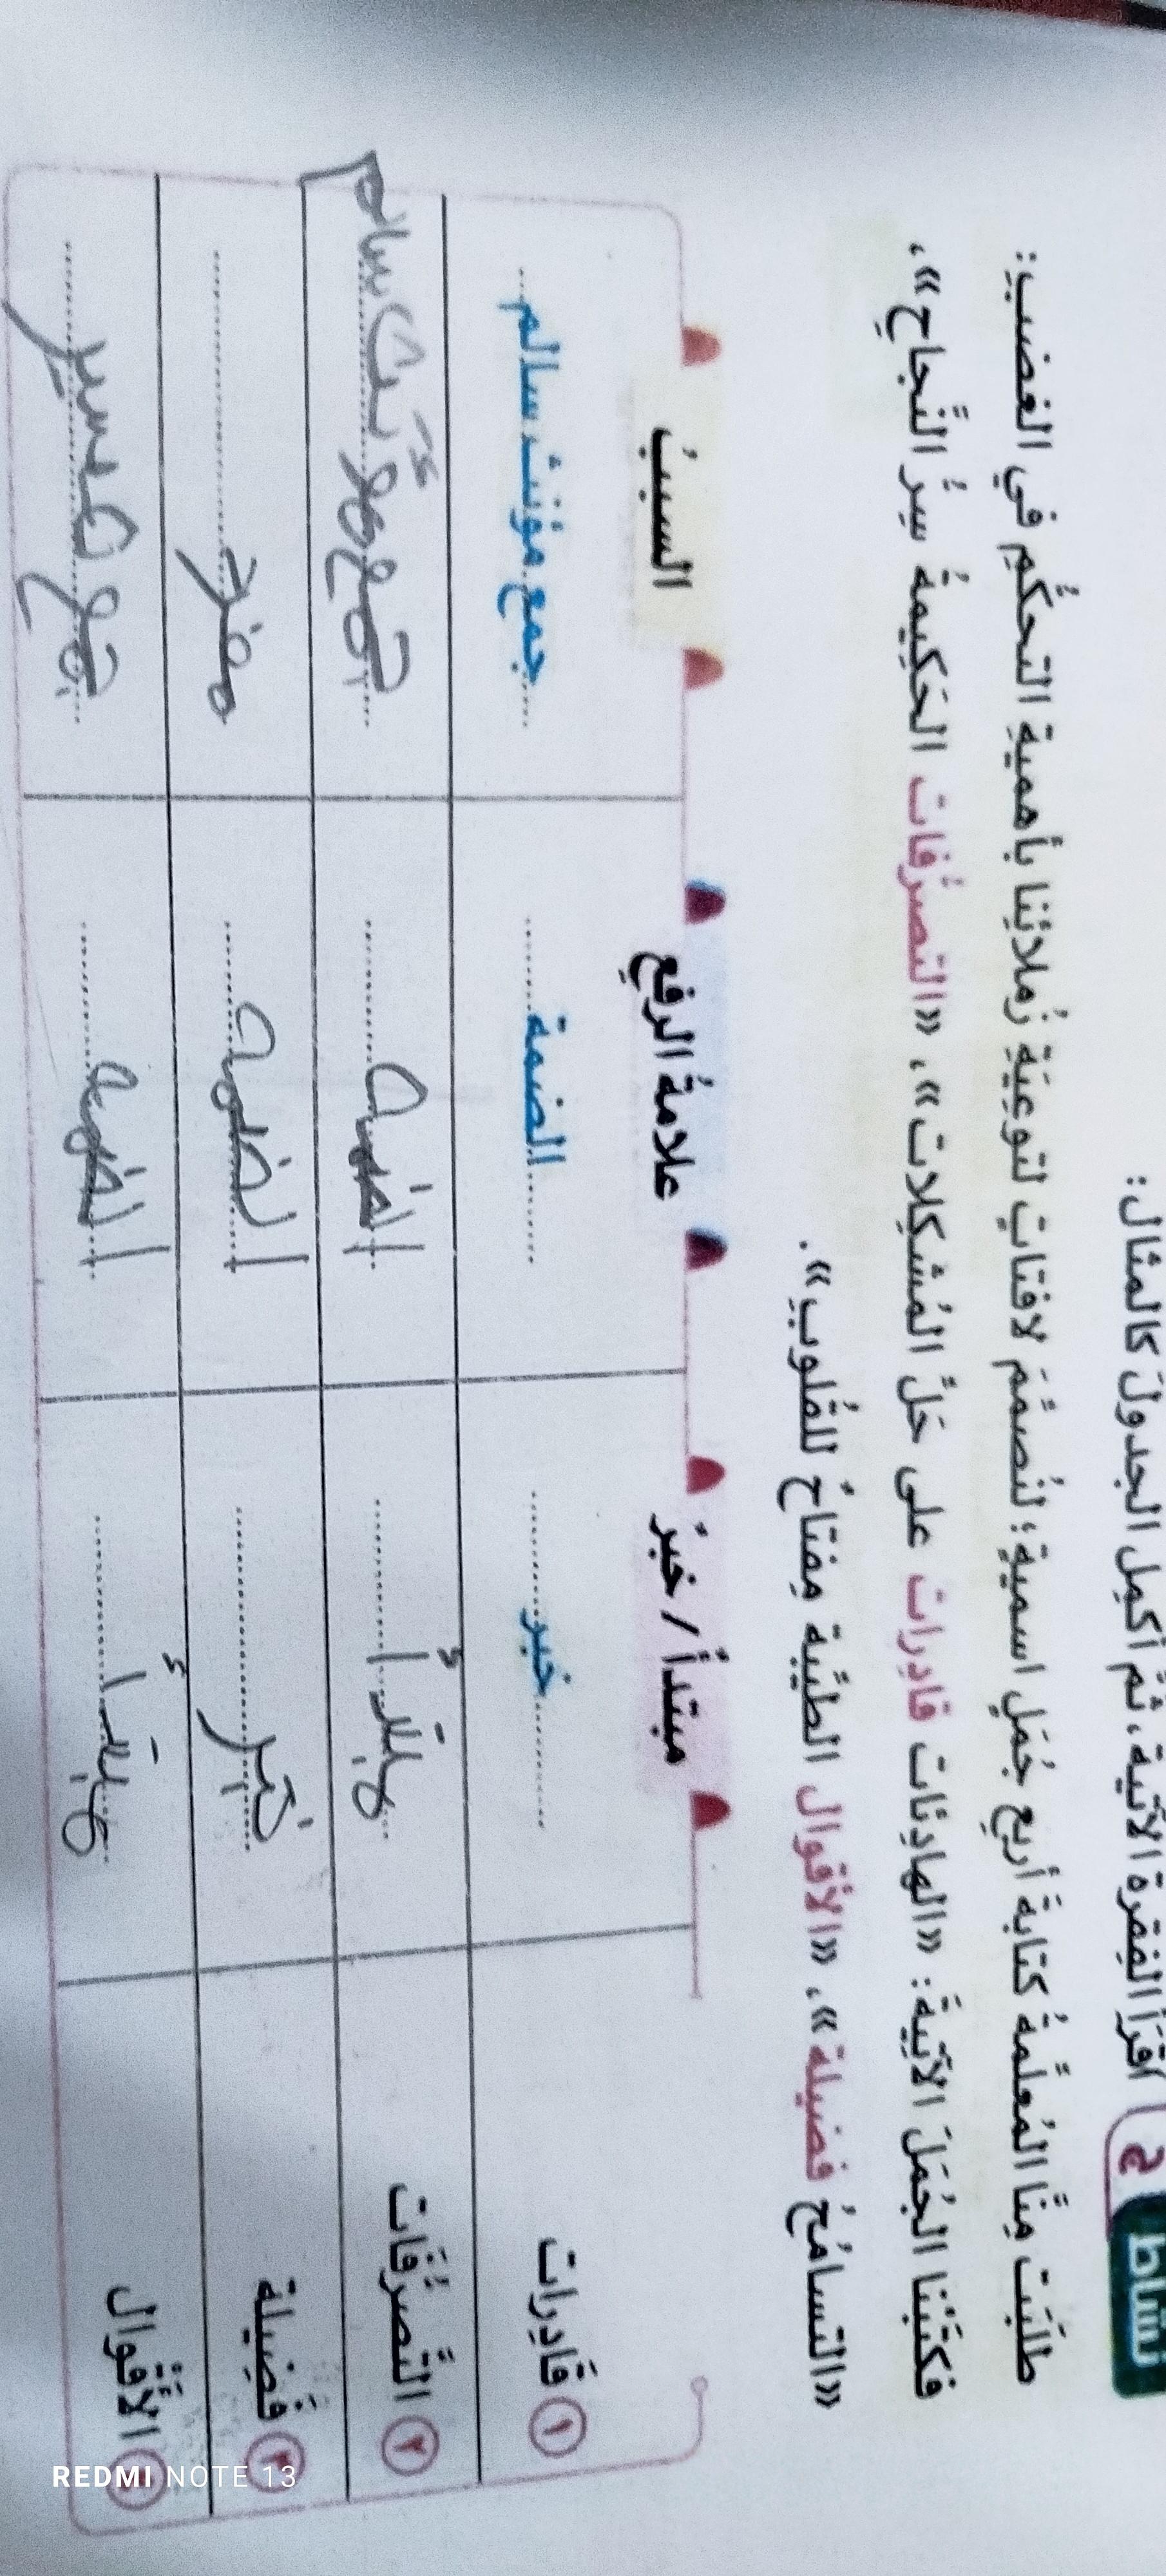 نشاط ٤ اقرَأ الفِقرة الآتية، ثمَّ أكمِل الجدولَ كالمثال:
طلبَت مِنَّا المُعلِّمةُ كتابةَ أربعِ جُمَلٍ اسميةٍ؛ لنُصمِّمَ لافتاتٍ لتوعيَةِ زُملائِنا بأهميةِ التحكُّمِ في الغضبِ:
فكتَبْنا الجُمَلَ الآتِيةَ: «الهادِئات قادِرات على حَلِّ المُشكِلات»، «التصرُّفات الحَكِيمةُ سِرُّ النَّجاحِ»،
«التسامُحُ فضيلة»، «الأقوال الطيِّبة مِفتاحٌ للقُلوبِ».
مبتدأٌ / خبرٌ علامةُ الرفعِ السببُ
١ قَادِرات خبر الضمة جمع مؤنث سالم
٢ التَّصرُّفَات مبتدأ الضمة جمع مؤنث سالم
٣ فَضِيلة خبر الضمة مفرد
٤ الأَقْوال مبتدأ الضمة جمع تكسير
REDMI NOTE 13